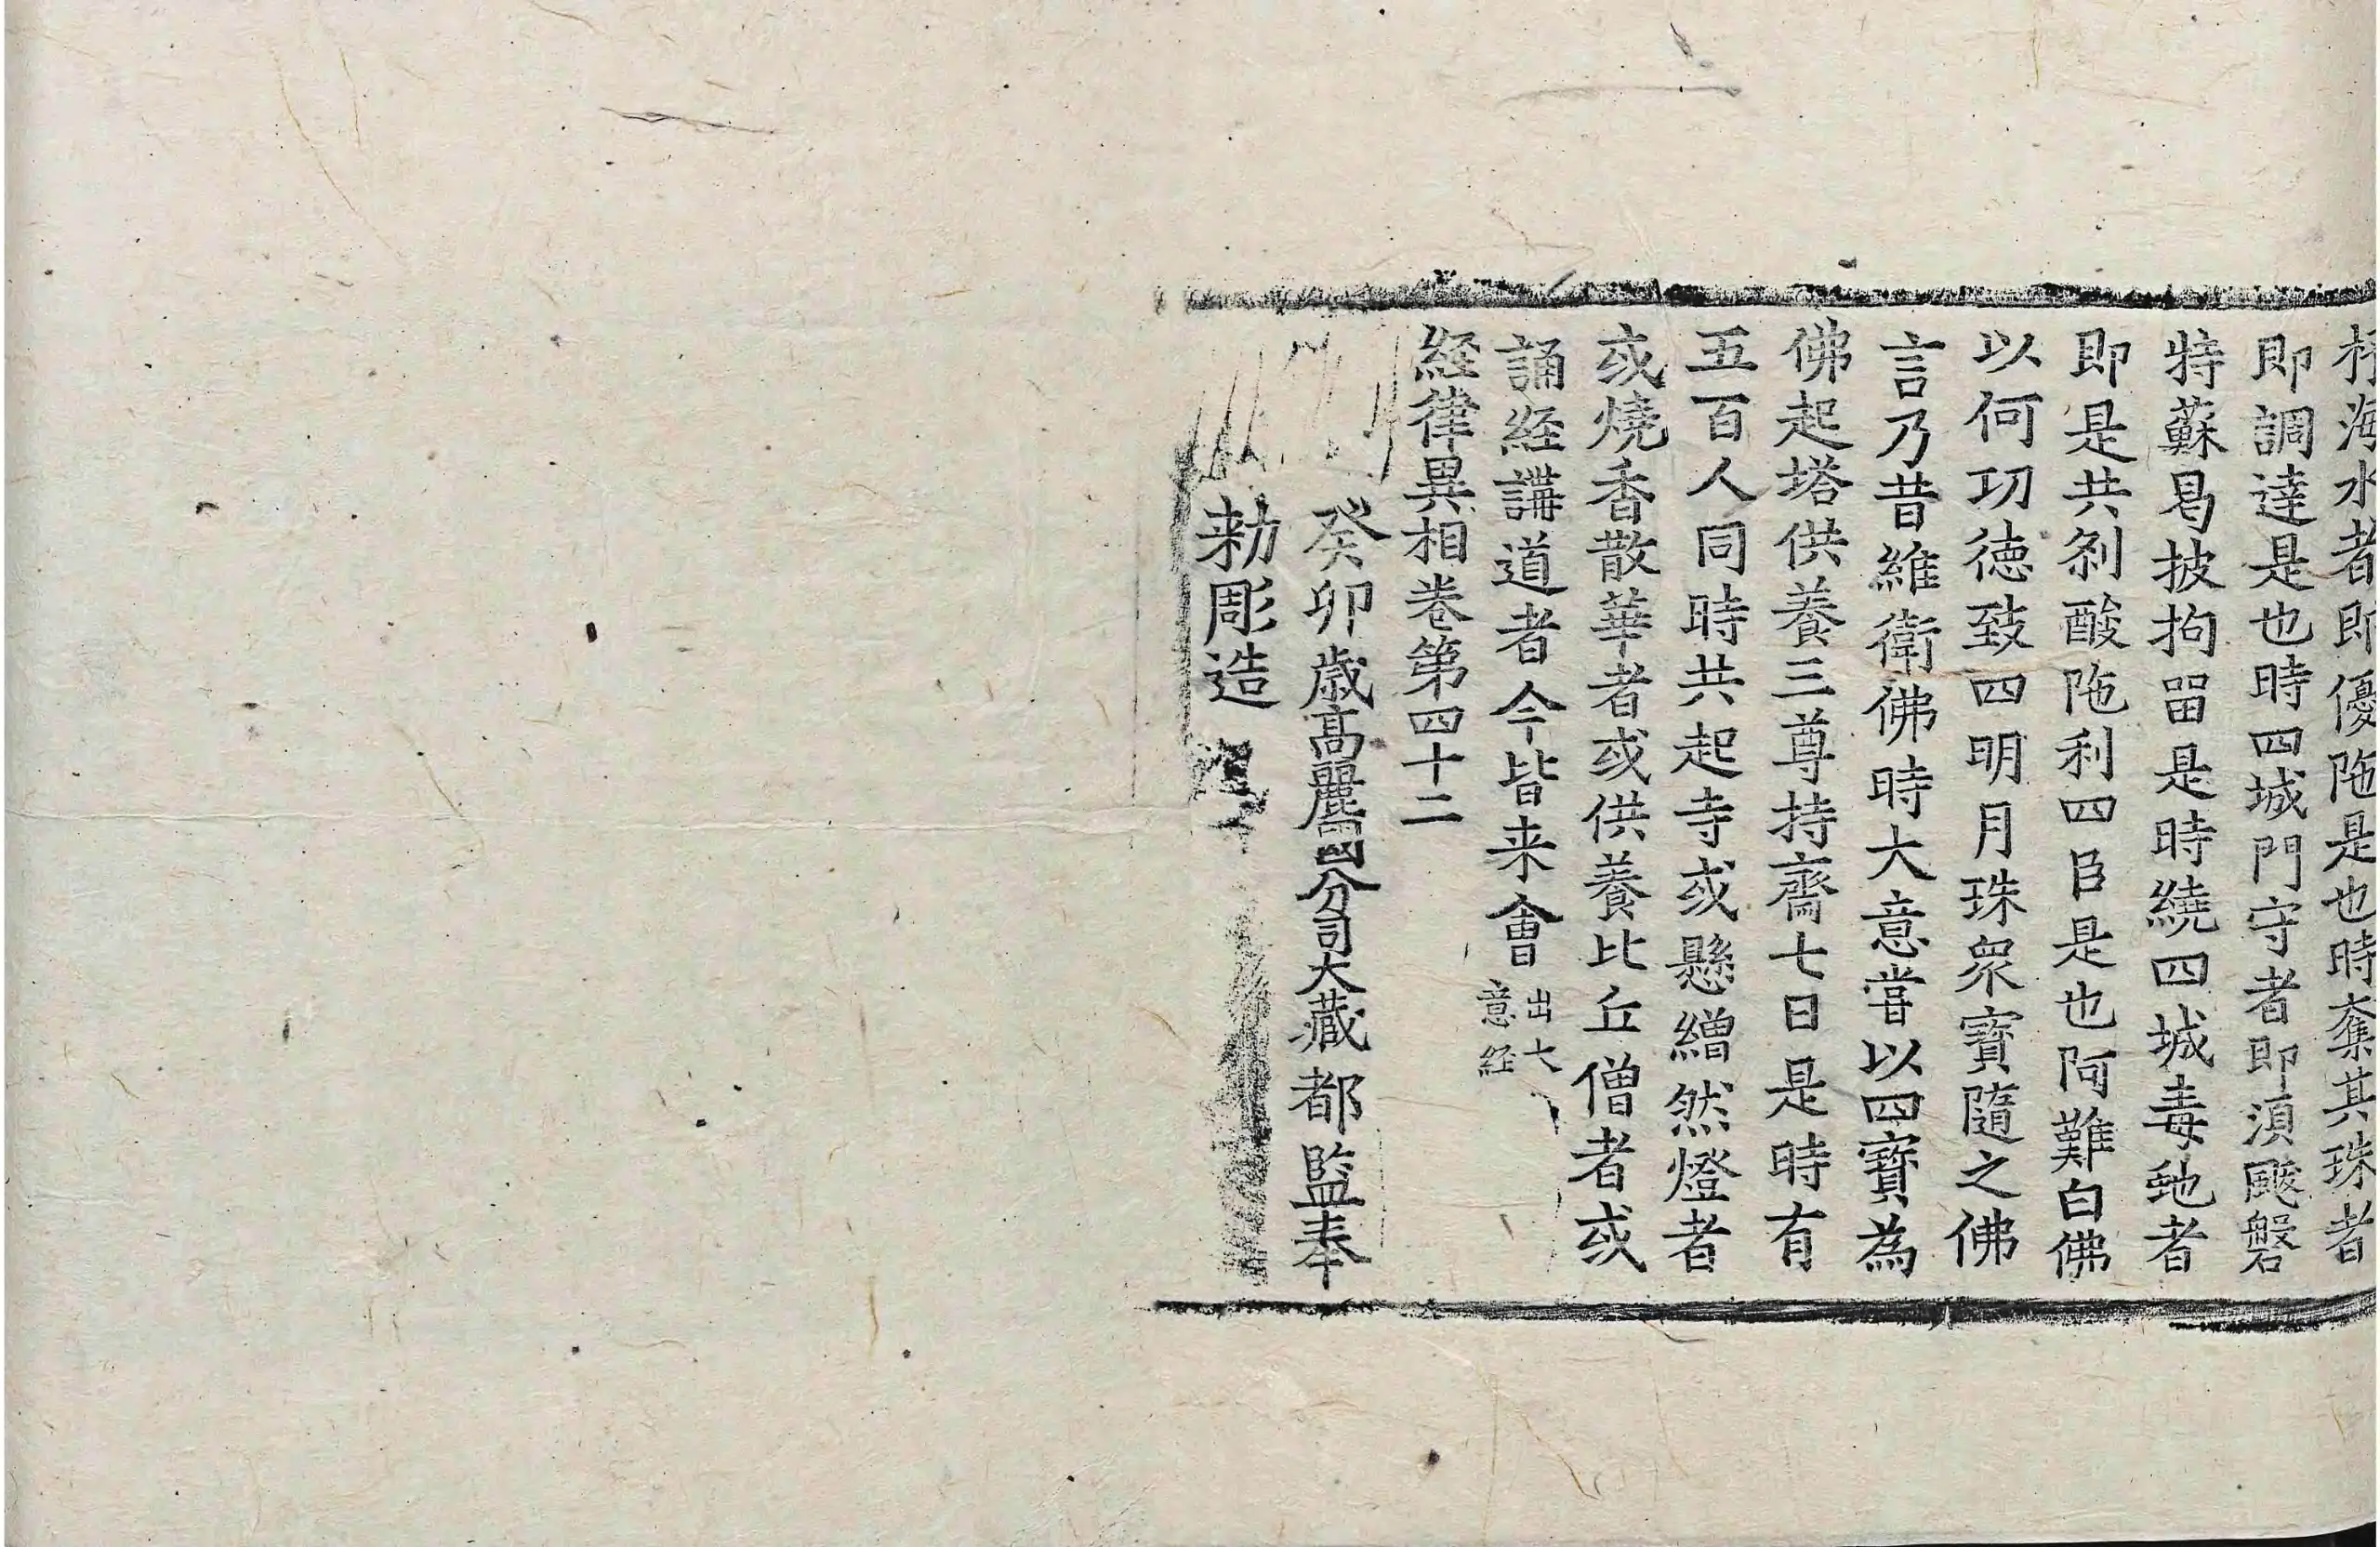 抒海水者即優陁是也時奪其珠者
即調達是也時四城門守者即湏颰磐
特蘇曷披拘留是時繞四城毒虵者
即是共刹酸陁利四臣是也阿難白佛
以何功徳致四明月珠衆寶隨之佛
言乃昔維衛佛時大意甞以四寶為
佛起塔供養三尊持齋七日是時有
五百人同時共起寺或懸繒然燈者
或燒香散華者或供養比丘僧者或
誦經講道者今皆来會
出大
意經
經律異相卷第四十二
癸卯歳髙麗國分司大藏都監奉
勑彫造